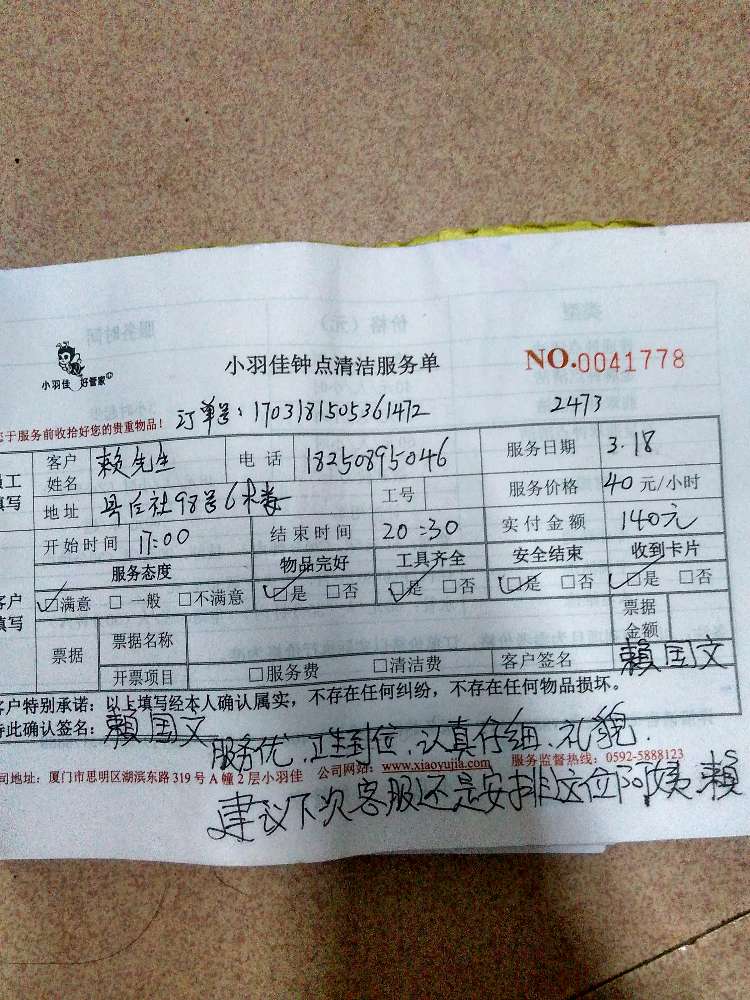 小羽佳钟点清洁服务单
NO.0041778
小羽佳 好管家
您于服务前收拾好您的贵重物品! 订单号:1703181505361472 2473
员工填写 客户姓名 赖先生 电话 18250895046 服务日期 3.18
地址 98号6楼 工号 服务价格 40元/小时
开始时间 17:00 结束时间 20:30 实付金额 140元
服务态度 物品完好 工具齐全 安全结束 收到卡片
客户填写 ☑满意 □一般 □不满意 ☑是 □否 ☑是 □否 ☑是 □否 ☑是 □否
票据 票据名称 票据金额
开票项目 □服务费 □清洁费 客户签名 賴国文
客户特别承诺:以上填写经本人确认属实,不存在任何纠纷,不存在任何物品损坏。
特此确认签名:賴国文
服务优、卫生到位、认真仔细、礼貌.
司地址:厦门市思明区湖滨东路319号A幢2层小羽佳 公司网站:www.xiaoyujia.com 服务监督热线:0592-5888123
建议下次客服还是安排这位阿姨 賴
类型 价格(元) 服务时间